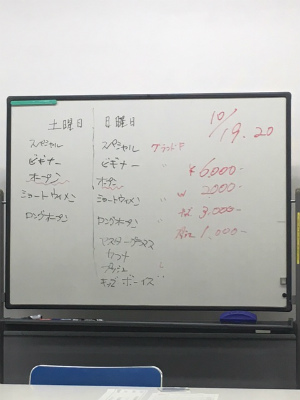 土曜日
スペシャル
ビギナー
オープン
ショートウィメン
ロングオープン
日曜日
スペシャル
ビギナー
オープン
ショートウィメン
ロングオープン
マスタープラマス
カデナ
キッズボーイズ
10/19.20
¥6000-
W 2000-
3,000-
1,000-